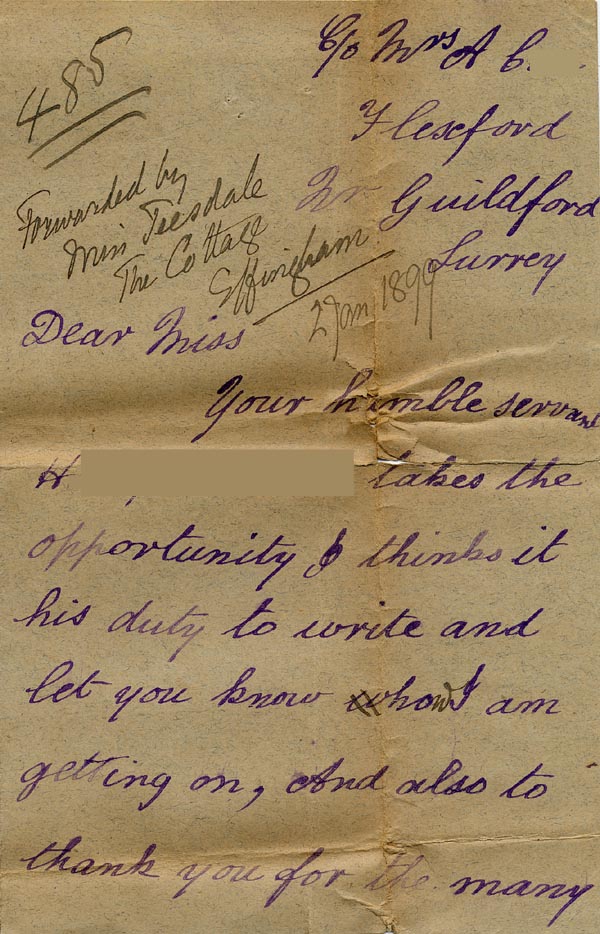 485
Forwarded by
Miss Teesdale
The Cottage
Effingham
2 Jan 1899
C/o Mrs A C
Flexford
Nr Guildford
Surrey
Dear Miss
Your humble servant
H takes the
opportunity & thinks it
his duty to write and
let you know how I am
getting on, And also to
thank you for the many